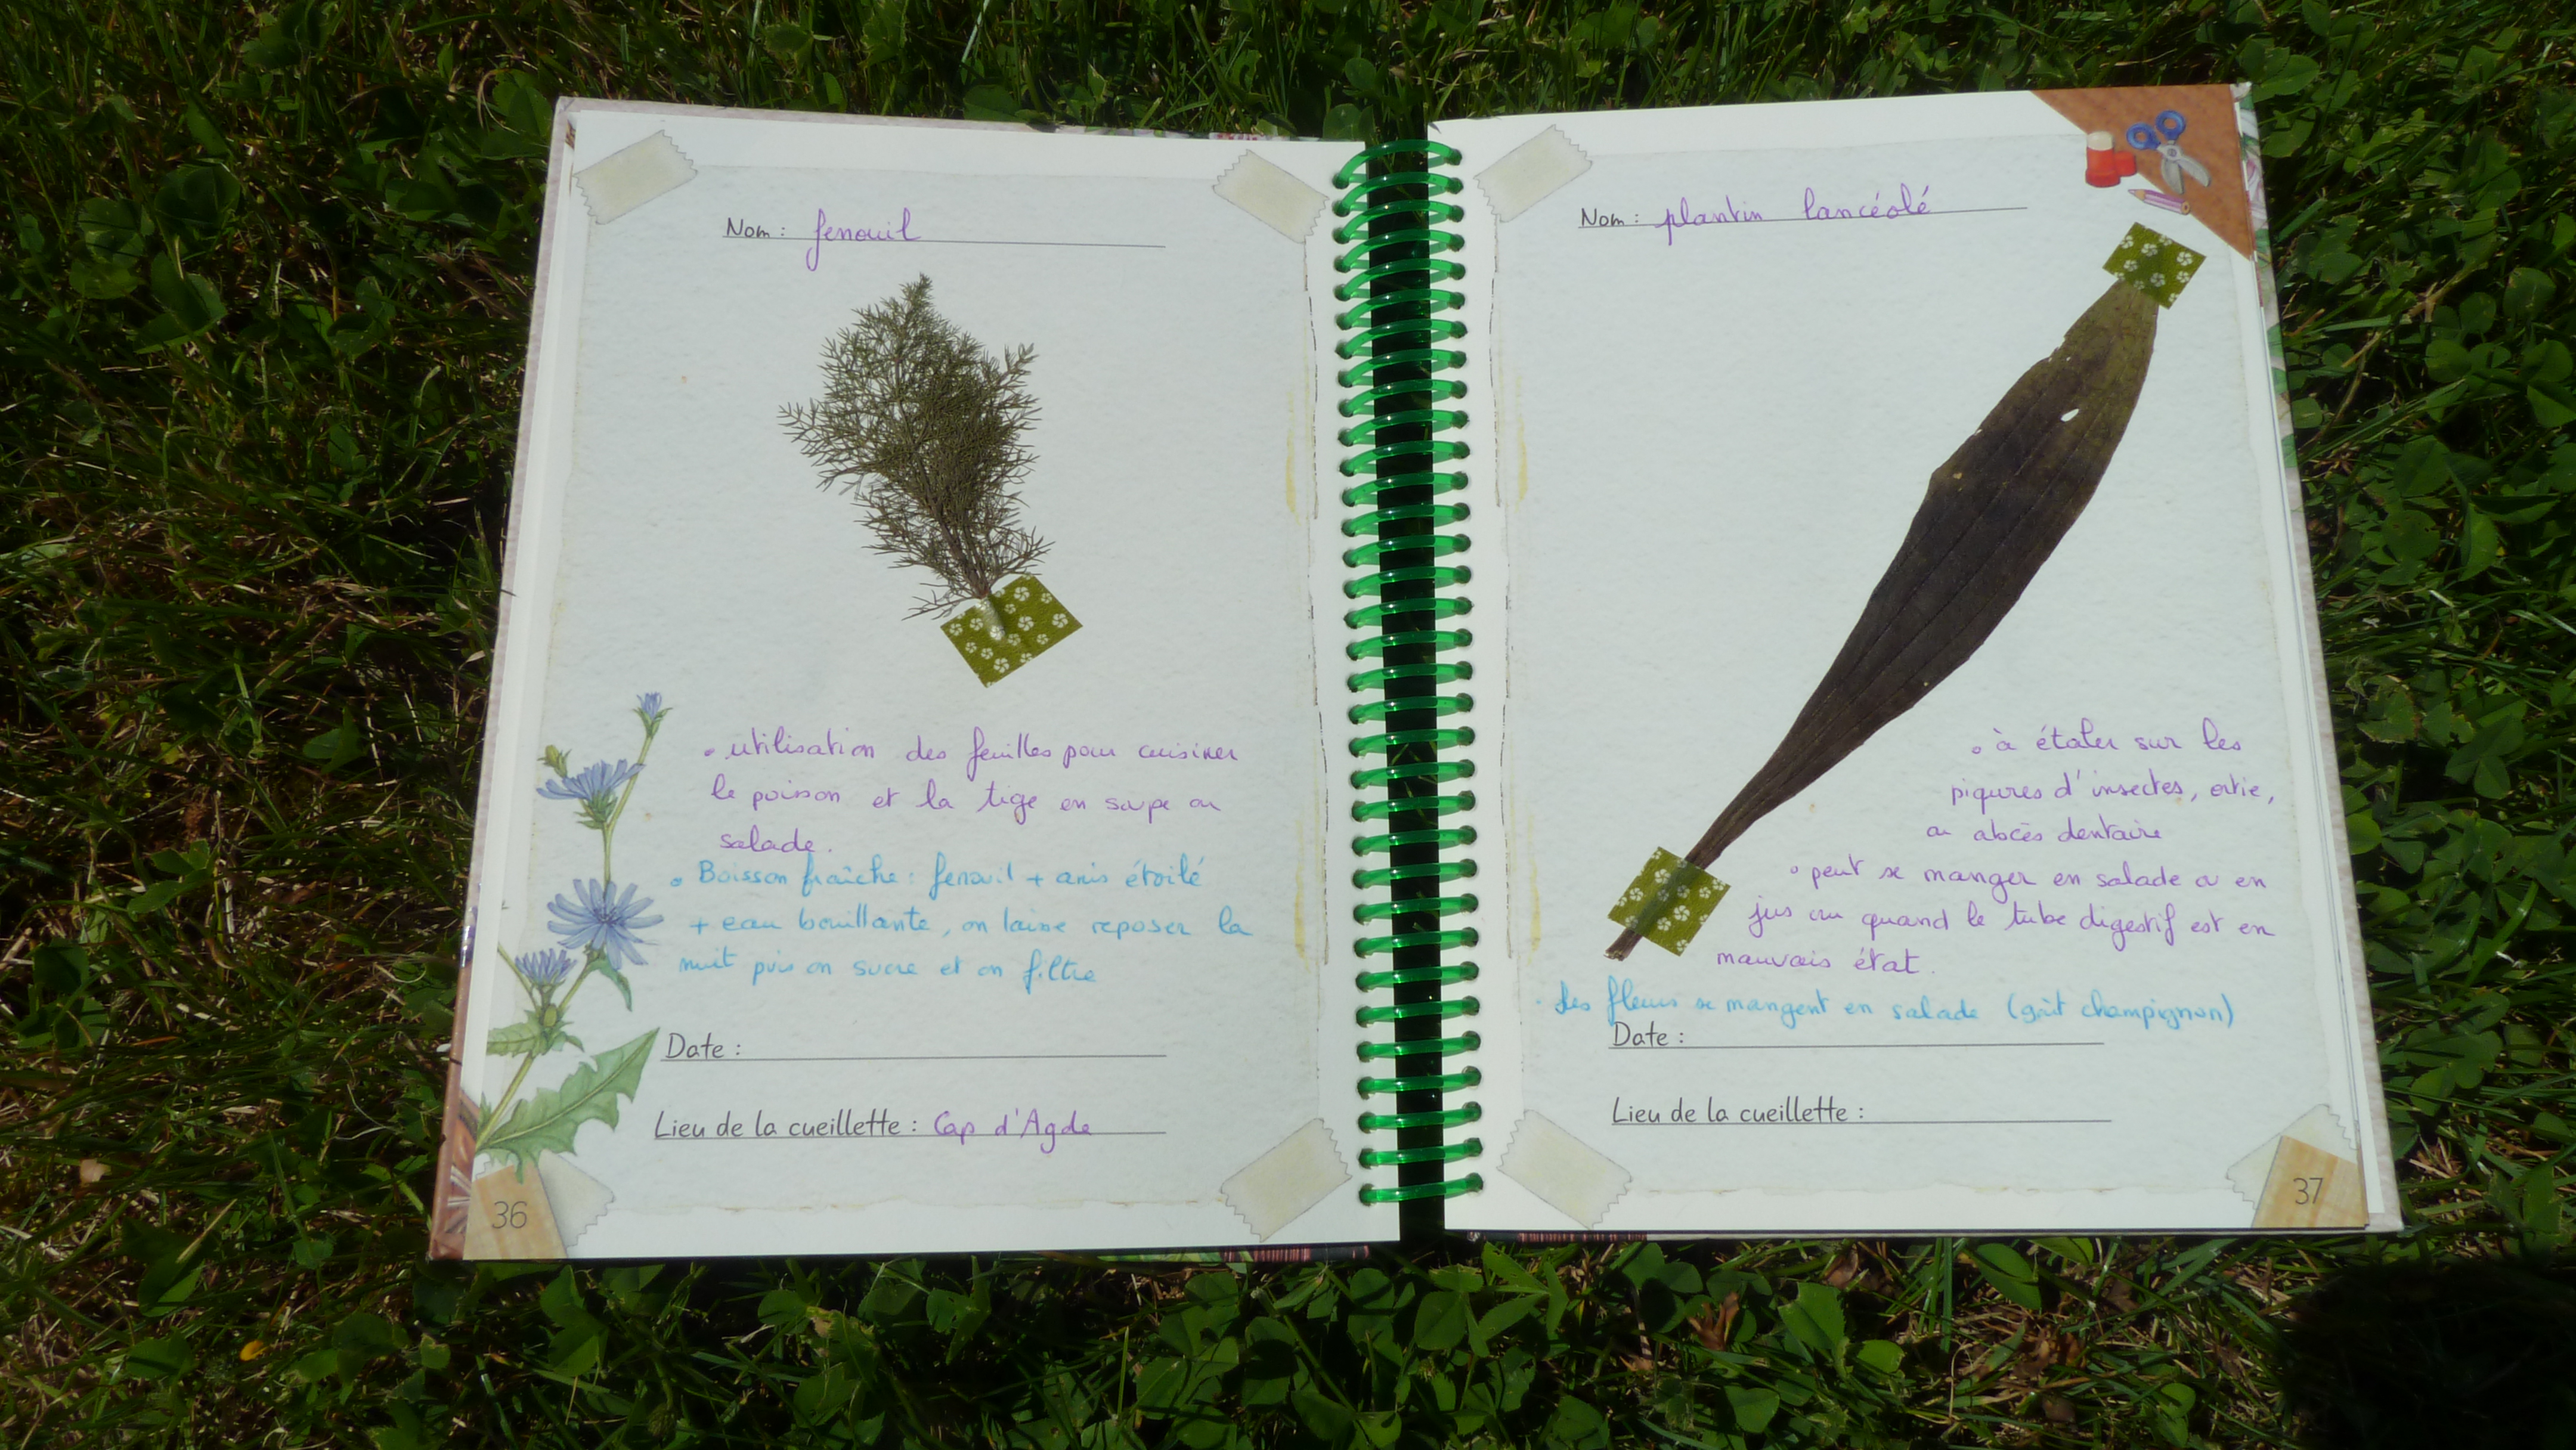 Nom : fenouil
• utilisation des feuilles pour cuisiner
le poisson et la tige en soupe ou
salade.
• Boisson fraîche : fenouil + anis étoilé
+ eau bouillante, on laisse reposer la
nuit puis on sucre et on filtre
Date :
Lieu de la cueillette : Cap d'Agde
36
Nom : plantin lancéolé
• à étaler sur les
piqures d'insectes, ortie,
ou abcès dentaire
• peut se manger en salade ou en
jus cru quand le tube digestif est en
mauvais état.
• Les fleurs se mangent en salade (goût champignon)
Date :
Lieu de la cueillette :
37